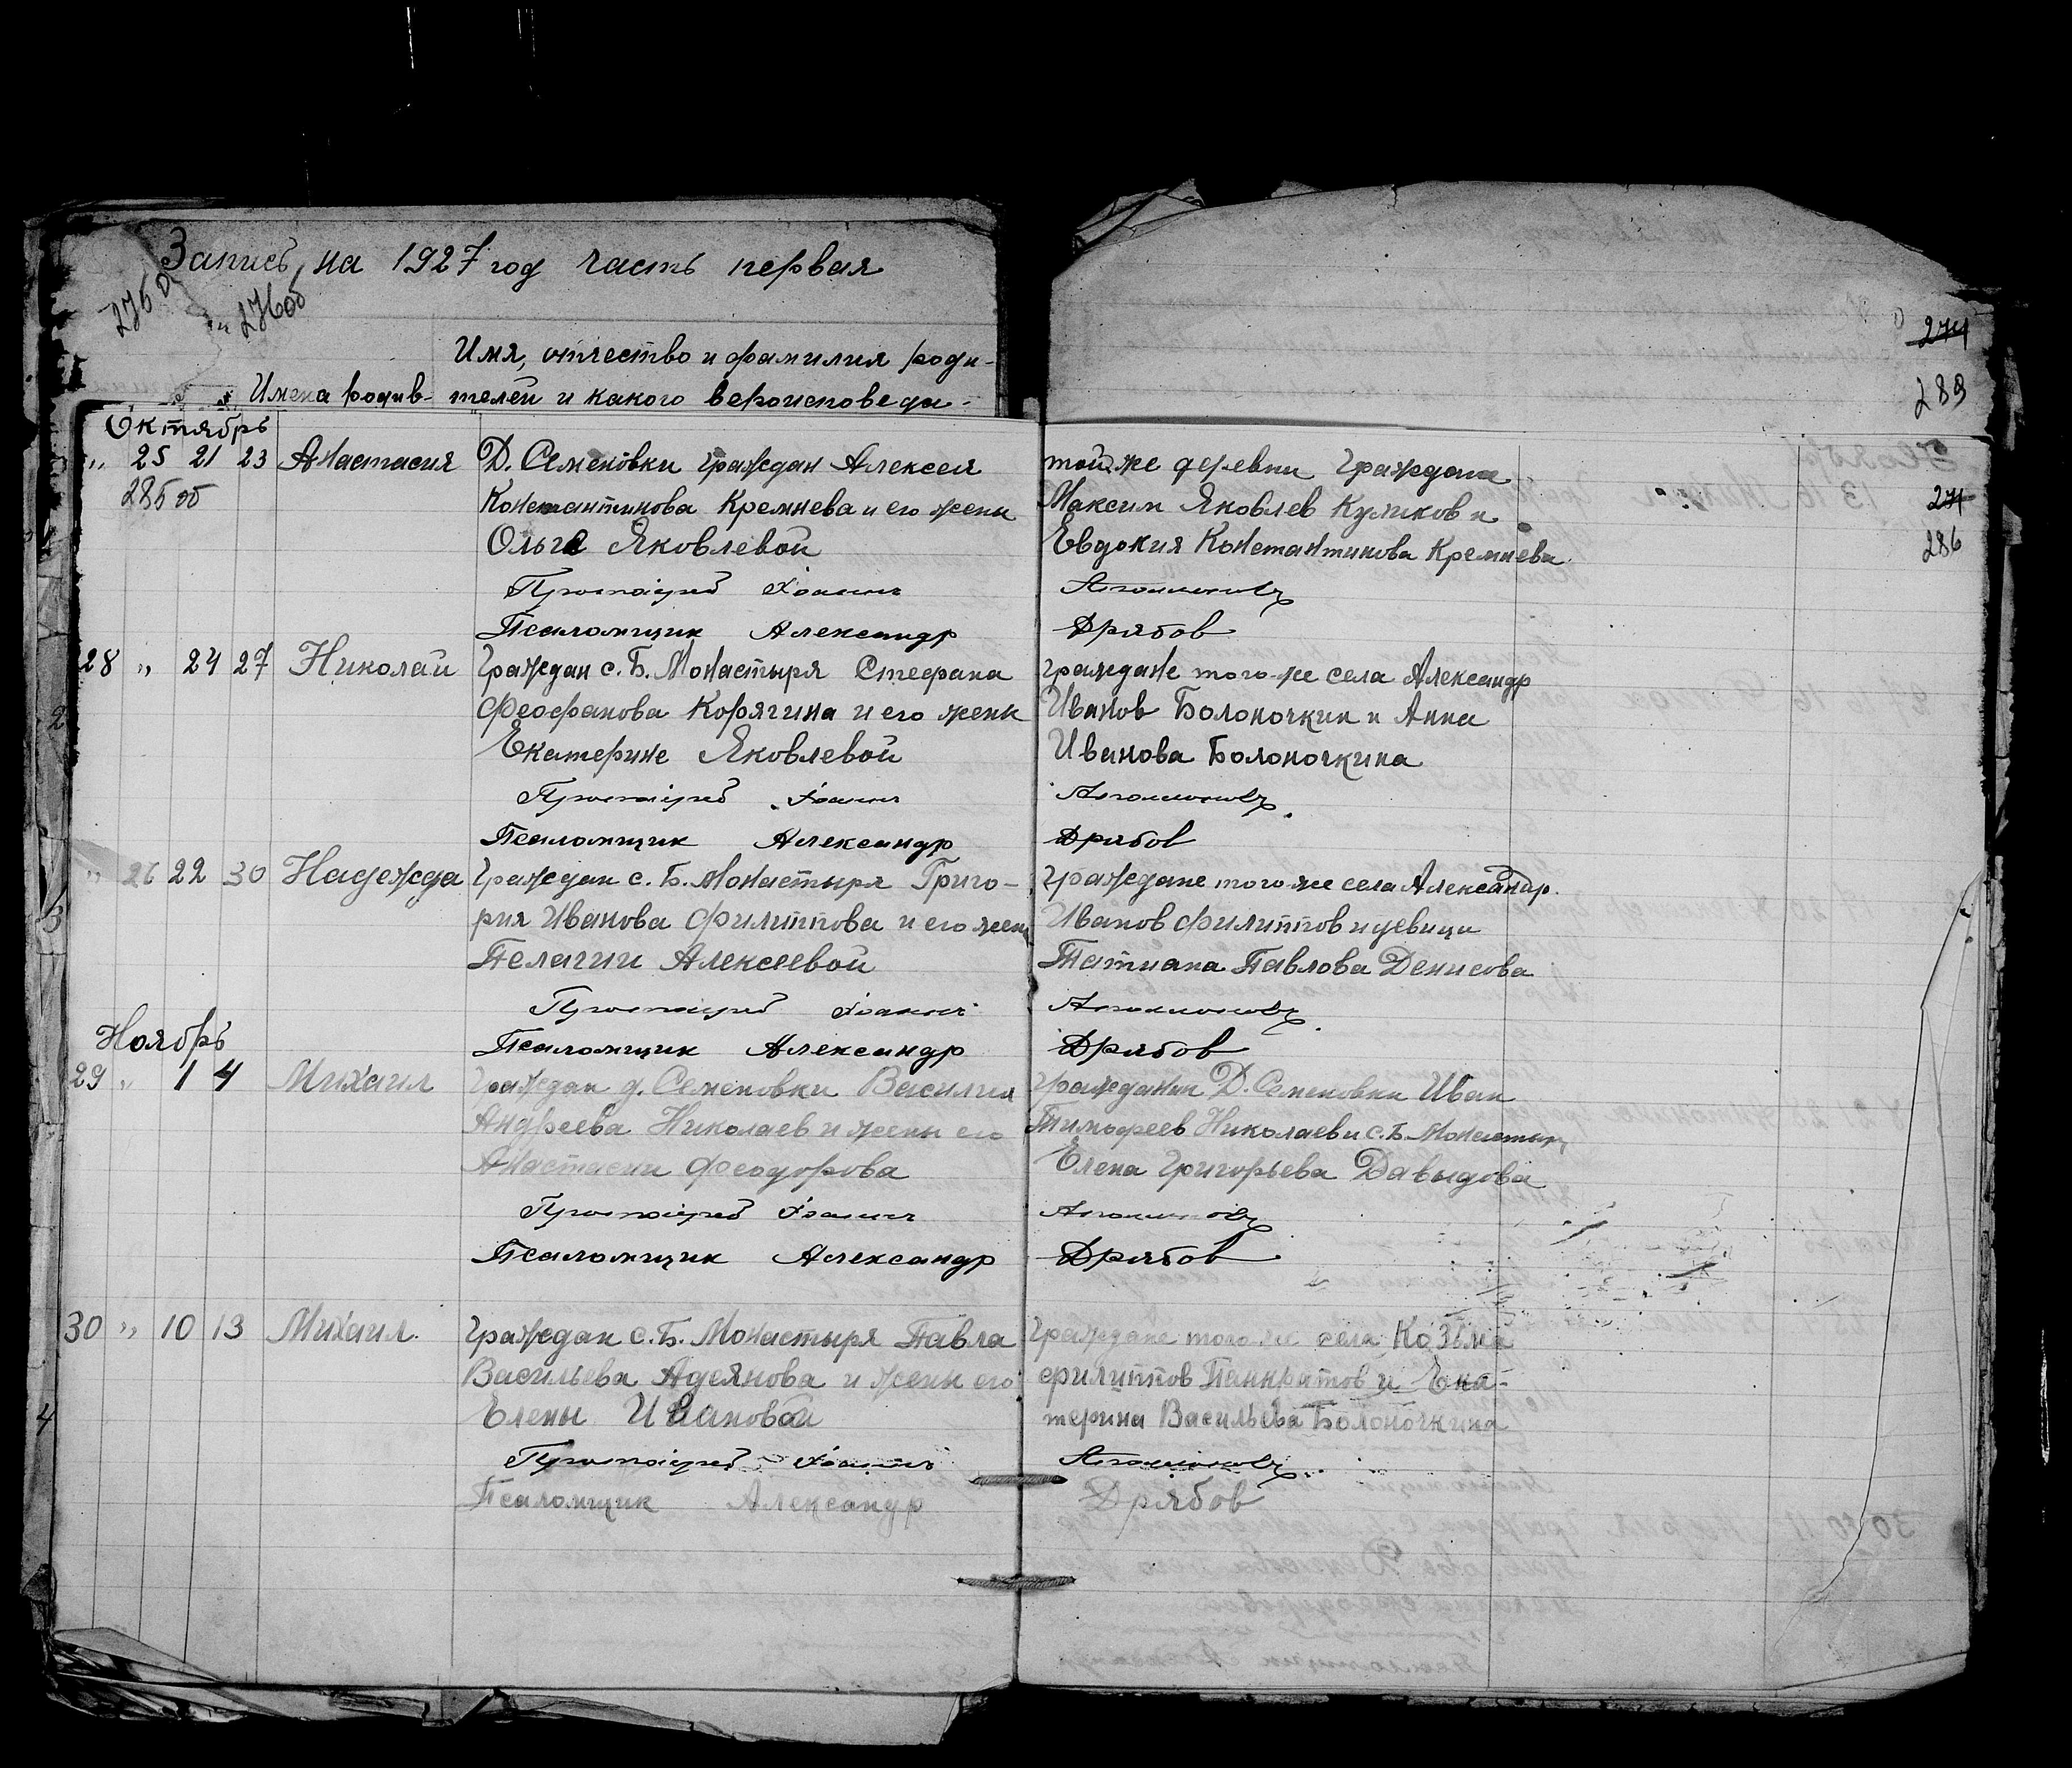 Запись на 1927 год часть первая
276об
274
289
Имя, отчество и фамилия роди-
Имена родив- телей и какого вероисповеда-
Октябрь
„ 25 21 23 Анастасия Д. Семеновки граждан Алексея той же деревни граждане
285об Константинова Кремнева и его жены Максим Яковлев Куликов и
274
286
Ольга Яковлевой Евдокия Константинова Кремнева
Протоіерей Іоаннъ
Псаломщик Александр Дрябов
28 „ 24 27 Николай Граждан с. Б. Монастыря Стефана граждане того же села Александр
Феофанова Корягина и его жены Иванов Болоночкин и Анна
Екатерине Яковлевой Иванова Болоночкина
Протоіерей Іоаннъ
Псаломщик Александр Дрябов
„ 26 22 30 Надежда Граждан с. Б. Монастыря Григо- граждане того же села Александр
рия Иванова Филиппова и его жены Иванов Филиппов и девица
Пелагии Алексеевой Татиана Павлова Денисова
Протоіерей Іоаннъ
Ноябрь
Псаломщик Александр Дрябов
29 „ 1 4 Михаил Граждан д. Семеновки Василия гражданин Д. Семеновки Иван
Андреева Николаев и жены его Тимофеев Николаев и с. Б. Монастыря
Анастасии Феодорова Елена Григорьева Давыдова
Протоіерей Іоаннъ
Псаломщик Александр Дрябов
30 „ 10 13 Михаил. Граждан с. Б. Монастыря Павла Граждане того же села Козьма
Васильева Адеянова и жены его филиппов Панкратов и Ека-
Елены Ивановой терина Васильева Болоночкина
Протоіерей Іоаннъ
Псаломщик Александр Дрябов